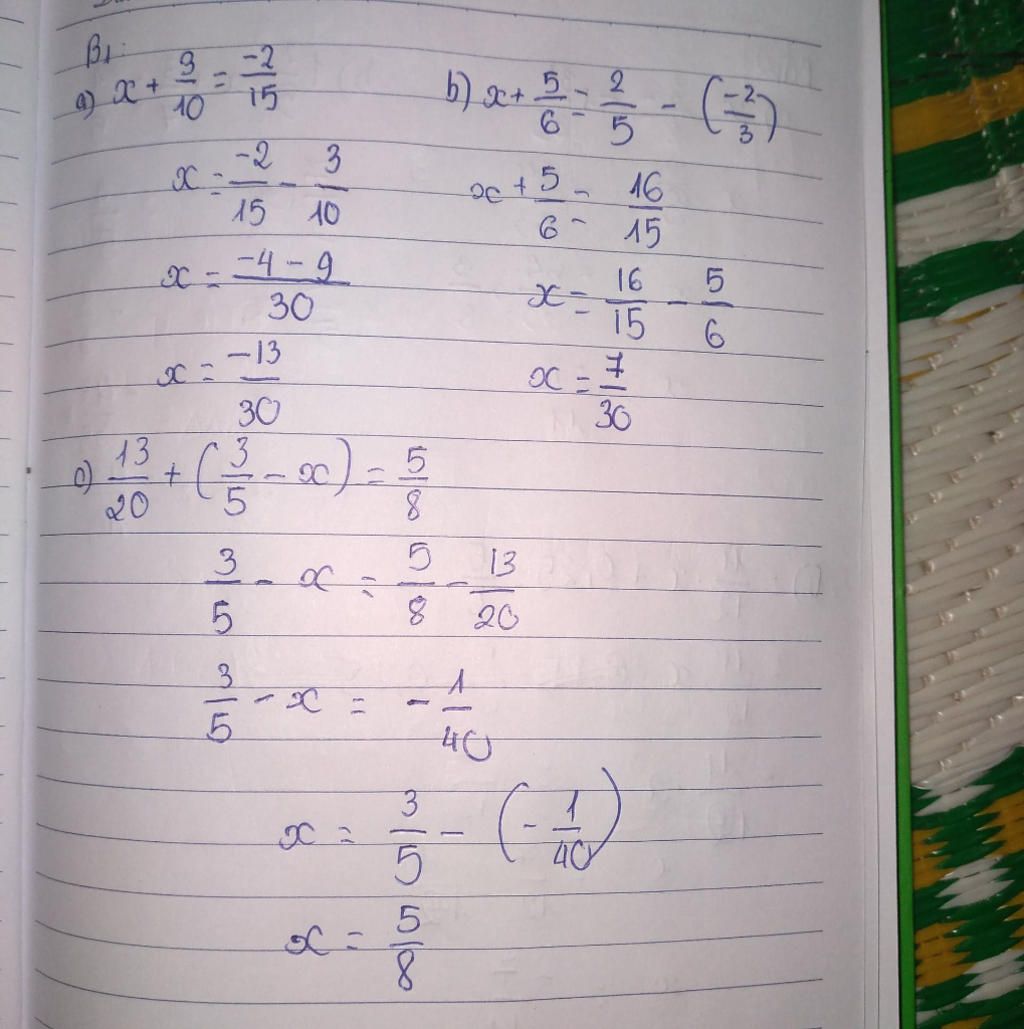 B1:
a) x + 3/10 = -2/15
x = -2/15 - 3/10
x = (-4 - 9)/30
x = -13/30
b) x + 5/6 = 2/5 - (-2/3)
x + 5/6 = 16/15
x = 16/15 - 5/6
x = 7/30
c) 13/20 + (3/5 - x) = 5/8
3/5 - x = 5/8 - 13/20
3/5 - x = - 1/40
x = 3/5 - (- 1/40)
x = 5/8